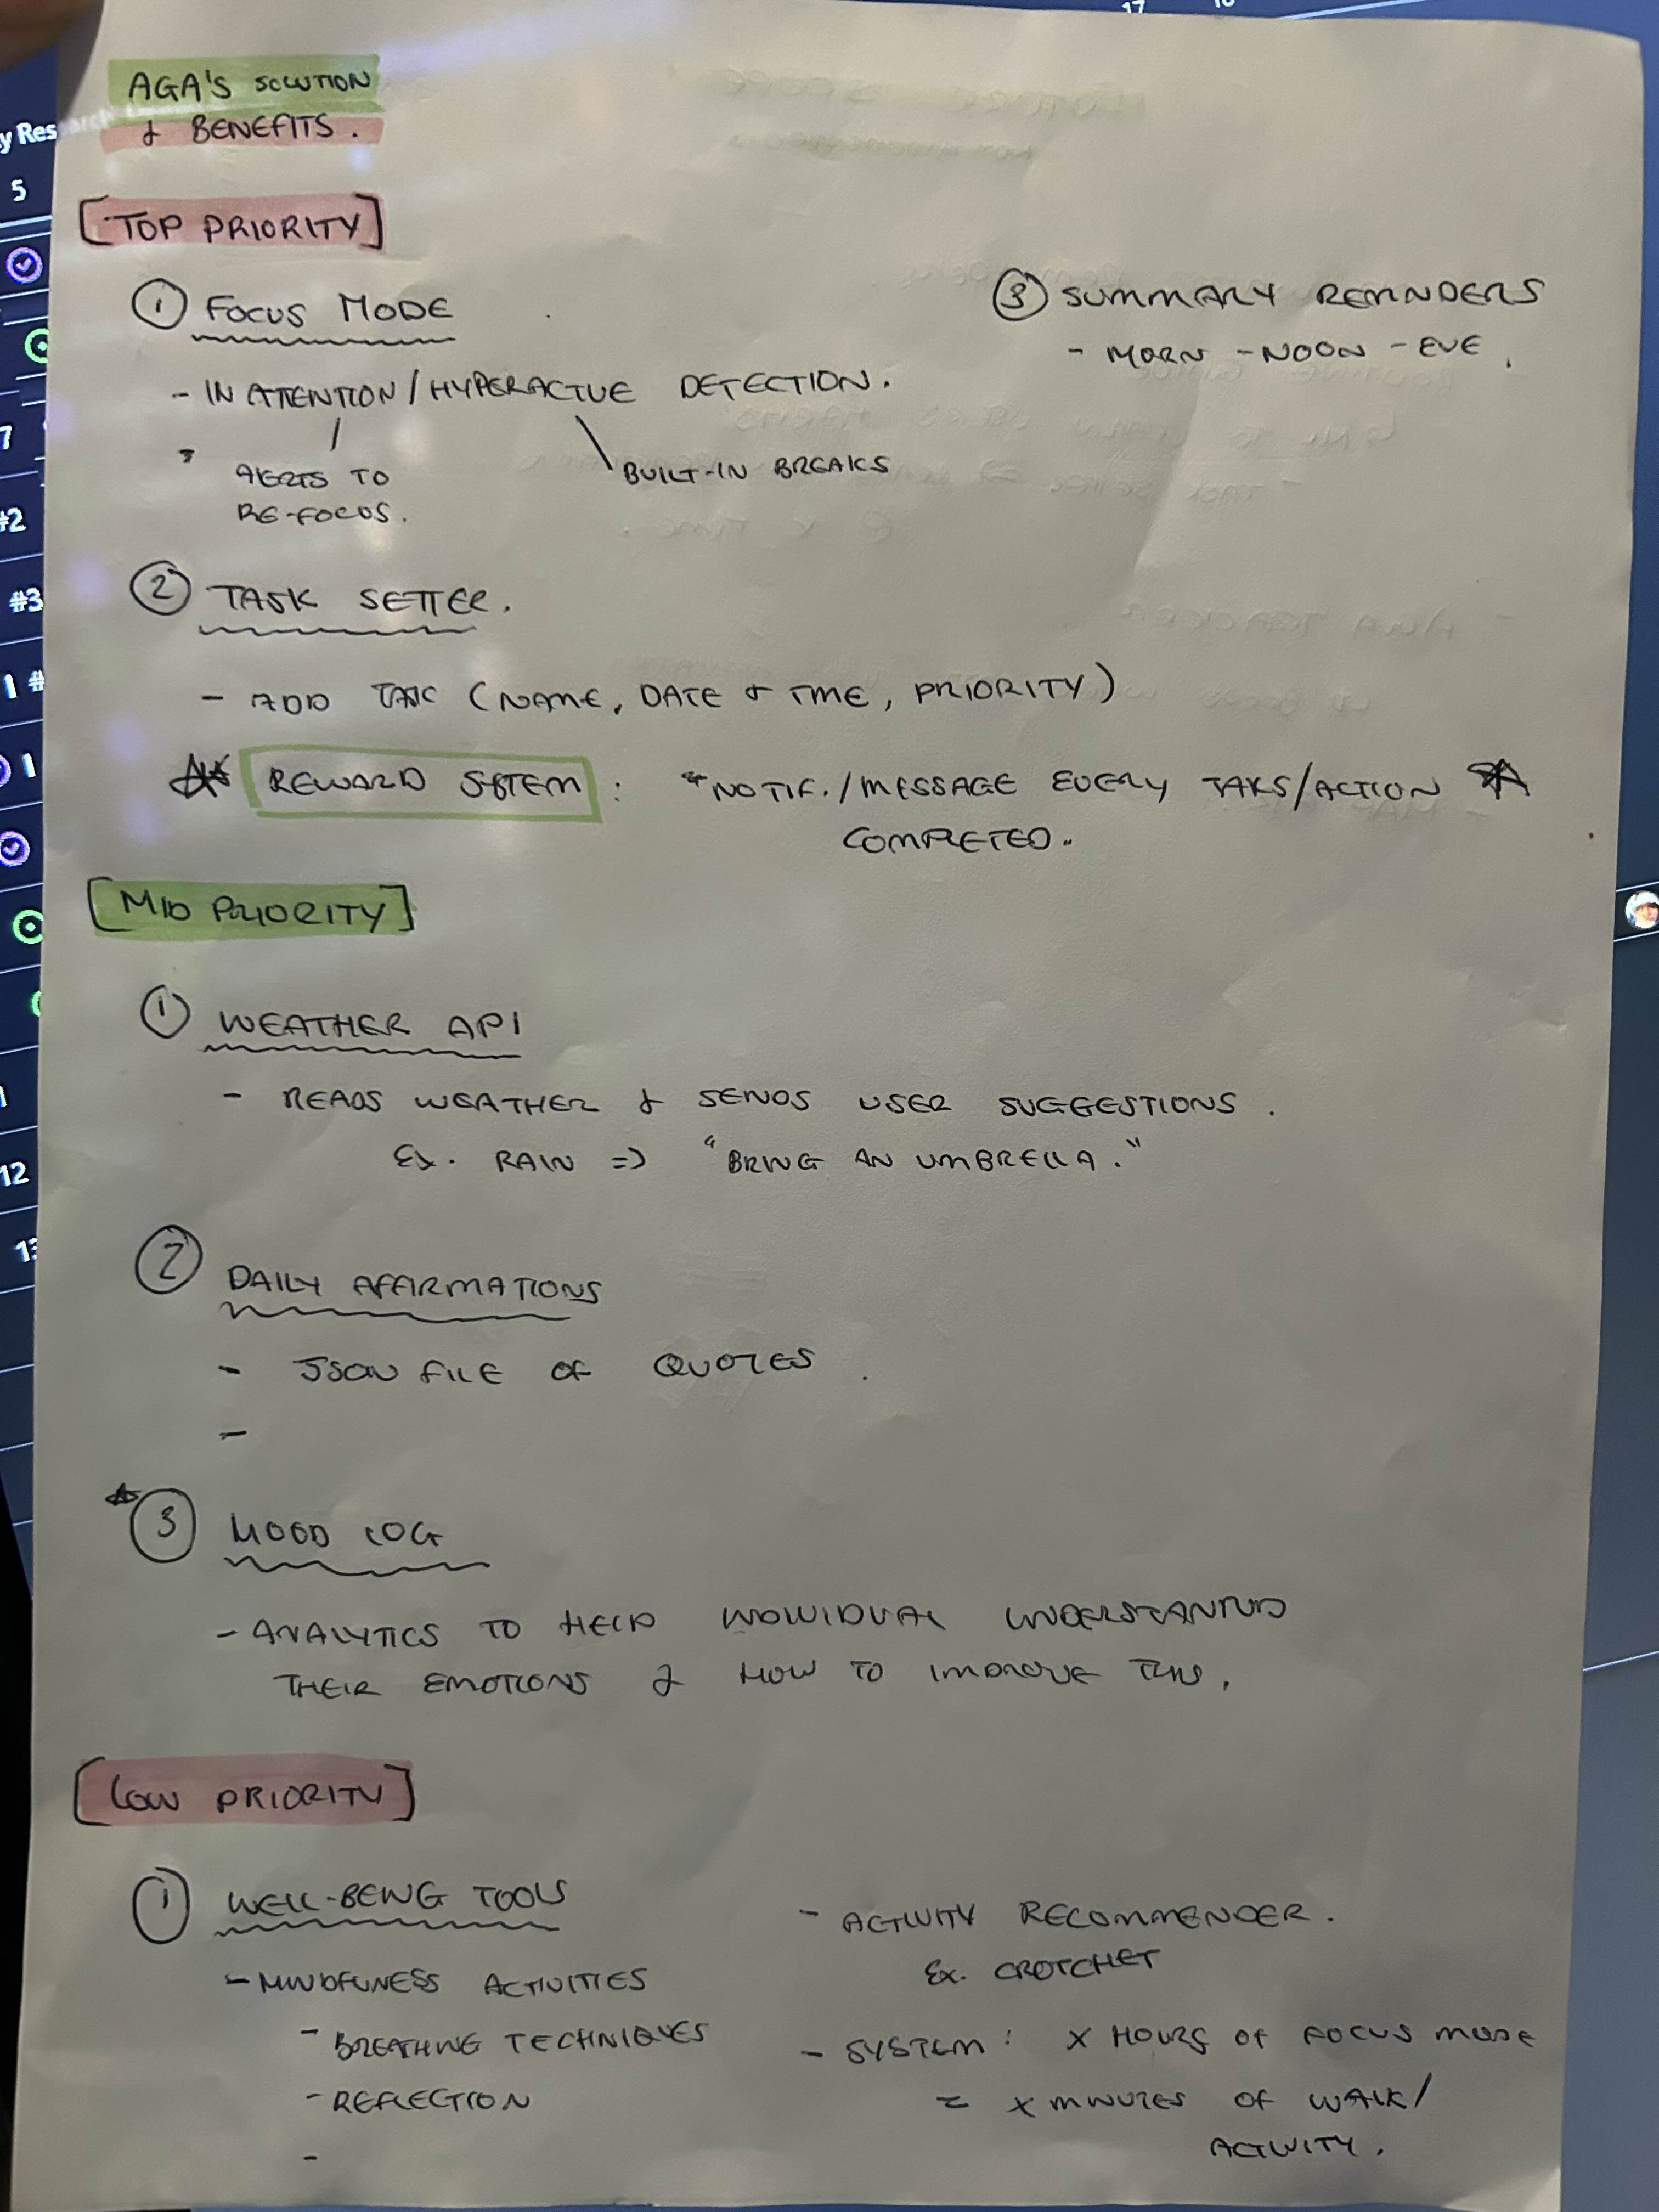 AGA'S SOLUTION
& BENEFITS.
[TOP PRIORITY]
① FOCUS MODE
- INATTENTION / HYPERACTIVE DETECTION.
ALERTS TO
RE-FOCUS.
BUILT-IN BREAKS
③ SUMMARY REMINDERS
- MORN - NOON - EVE.
② TASK SETTER.
- ADD TASK (NAME, DATE & TIME, PRIORITY)
REWARD SYSTEM : NOTIF./MESSAGE EVERY TAKS/ACTION
COMPLETED.
[MID PRIORITY]
① WEATHER API
- READS WEATHER & SENDS USER SUGGESTIONS.
EX. RAIN => "BRING AN UMBRELLA."
② DAILY AFFIRMATIONS
- JSON FILE OF QUOTES.
-
③ MOOD LOG
- ANALYTICS TO HELP INDIVIDUAL
THEIR EMOTIONS & HOW TO IMPROVE THIS.
[LOW PRIORITY]
① WELL-BEING TOOLS
- MINDFUNESS ACTIVITIES
- BREATHING TECHNIQUES
- REFLECTION
-
- ACTIVITY RECOMMENDER.
EX. CROTCHET
- SYSTEM: X HOURS OF FOCUS MODE
= X MINUTES OF WALK/
ACTIVITY.
y Res
5
7
#2
#3
1 #
1
12
13
17